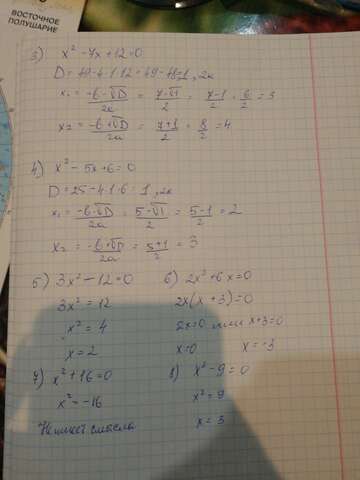 ВОСТОЧНОЕ
ПОЛУШАРИЕ
3) x² - 7x + 12 = 0
D = 49 - 4·1·12 = 49 - 48 = 1, 2к
x₁ = (-b - √D)/2a = (7 - √1)/2 = (7 - 1)/2 = 6/2 = 3
x₂ = (-b + √D)/2a = (7 + 1)/2 = 8/2 = 4
4) x² - 5x + 6 = 0
D = 25 - 4·1·6 = 1, 2к
x₁ = (-b - √D)/2a = (5 - √1)/2 = (5 - 1)/2 = 2
x₂ = (-b + √D)/2a = (5 + 1)/2 = 3
5) 3x² - 12 = 0
3x² = 12
x² = 4
x = 2
6) 2x² + 6x = 0
2x(x + 3) = 0
2x = 0 или x + 3 = 0
x = 0 x = -3
7) x² + 16 = 0
x² = -16
Не имеет смысла
8) x² - 9 = 0
x² = 9
x = 3